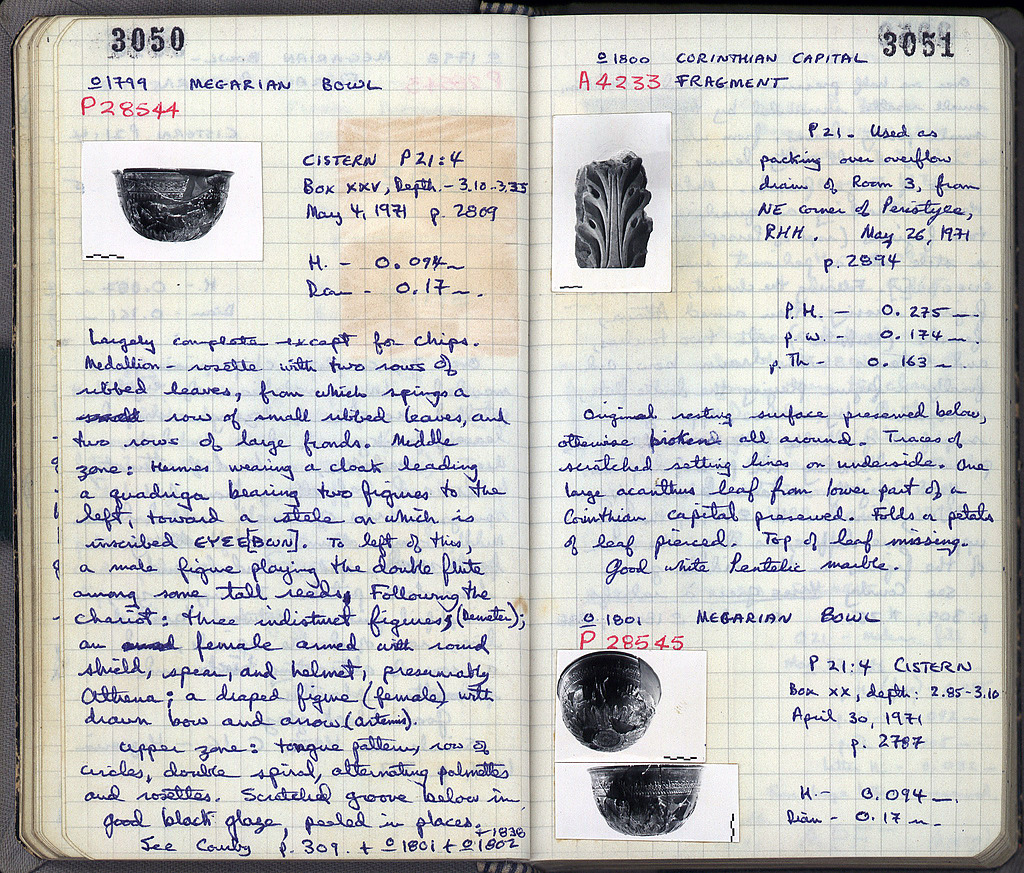 3050
º1799 MEGARIAN BOWL
P28544
CISTERN P21:4
Box XXV, Depth - 3.10-3.35
May 4, 1971 p. 2809
H. - 0.094 m
Diam - 0.17 m.
Largely complete except for chips.
Medallion - rosette with two rows of
ribbed leaves, from which spings a
row of small ribbed leaves, and
two rows of large fronds. Middle
zone: Hermes wearing a cloak leading
a quadriga bearing two figures to the
left, toward a stele on which is
inscribed ΕΥΣΕ[ΒΩΝ]. To left of this,
a male figure playing the double flute
among some tall reeds, Following the
chariot: three indistinct figures, (Demeter);
an female armed with round
shield, spear, and helmet, presumably
Athena; a draped figure (female) with
drawn bow and arrow (Artemis).
Upper zone: tongue pattern, row of
circles, double spiral, alternating palmettes
and rosettes. Scratched groove below rim,
good black glaze, peeled in places.
See Courby p. 309. + º1801 + º1802 + 1838
3051
º1800 CORINTHIAN CAPITAL
A4233 FRAGMENT
P21. Used as
packing over overflow
drain of Room 3, from
NE corner of Peristyle,
RHH. May 26, 1971
p. 2894
P.H. - 0.275 m.
p.w. - 0.174 m.
p.Th - 0.163 m.
Original resting surface preserved below,
otherwise broken all around. Traces of
scratched setting lines on underside. One
large acanthus leaf from lower part of a
Corinthian capital preserved. Folds or petals
of leaf pierced. Top of leaf missing.
Good white Pentelic marble.
º1801 MEGARIAN BOWL
P 28545
P21:4 CISTERN
Box XX, depth: 2.85-3.10
April 30, 1971
p. 2787
H. - 0.094 m.
Diam - 0.17 m.